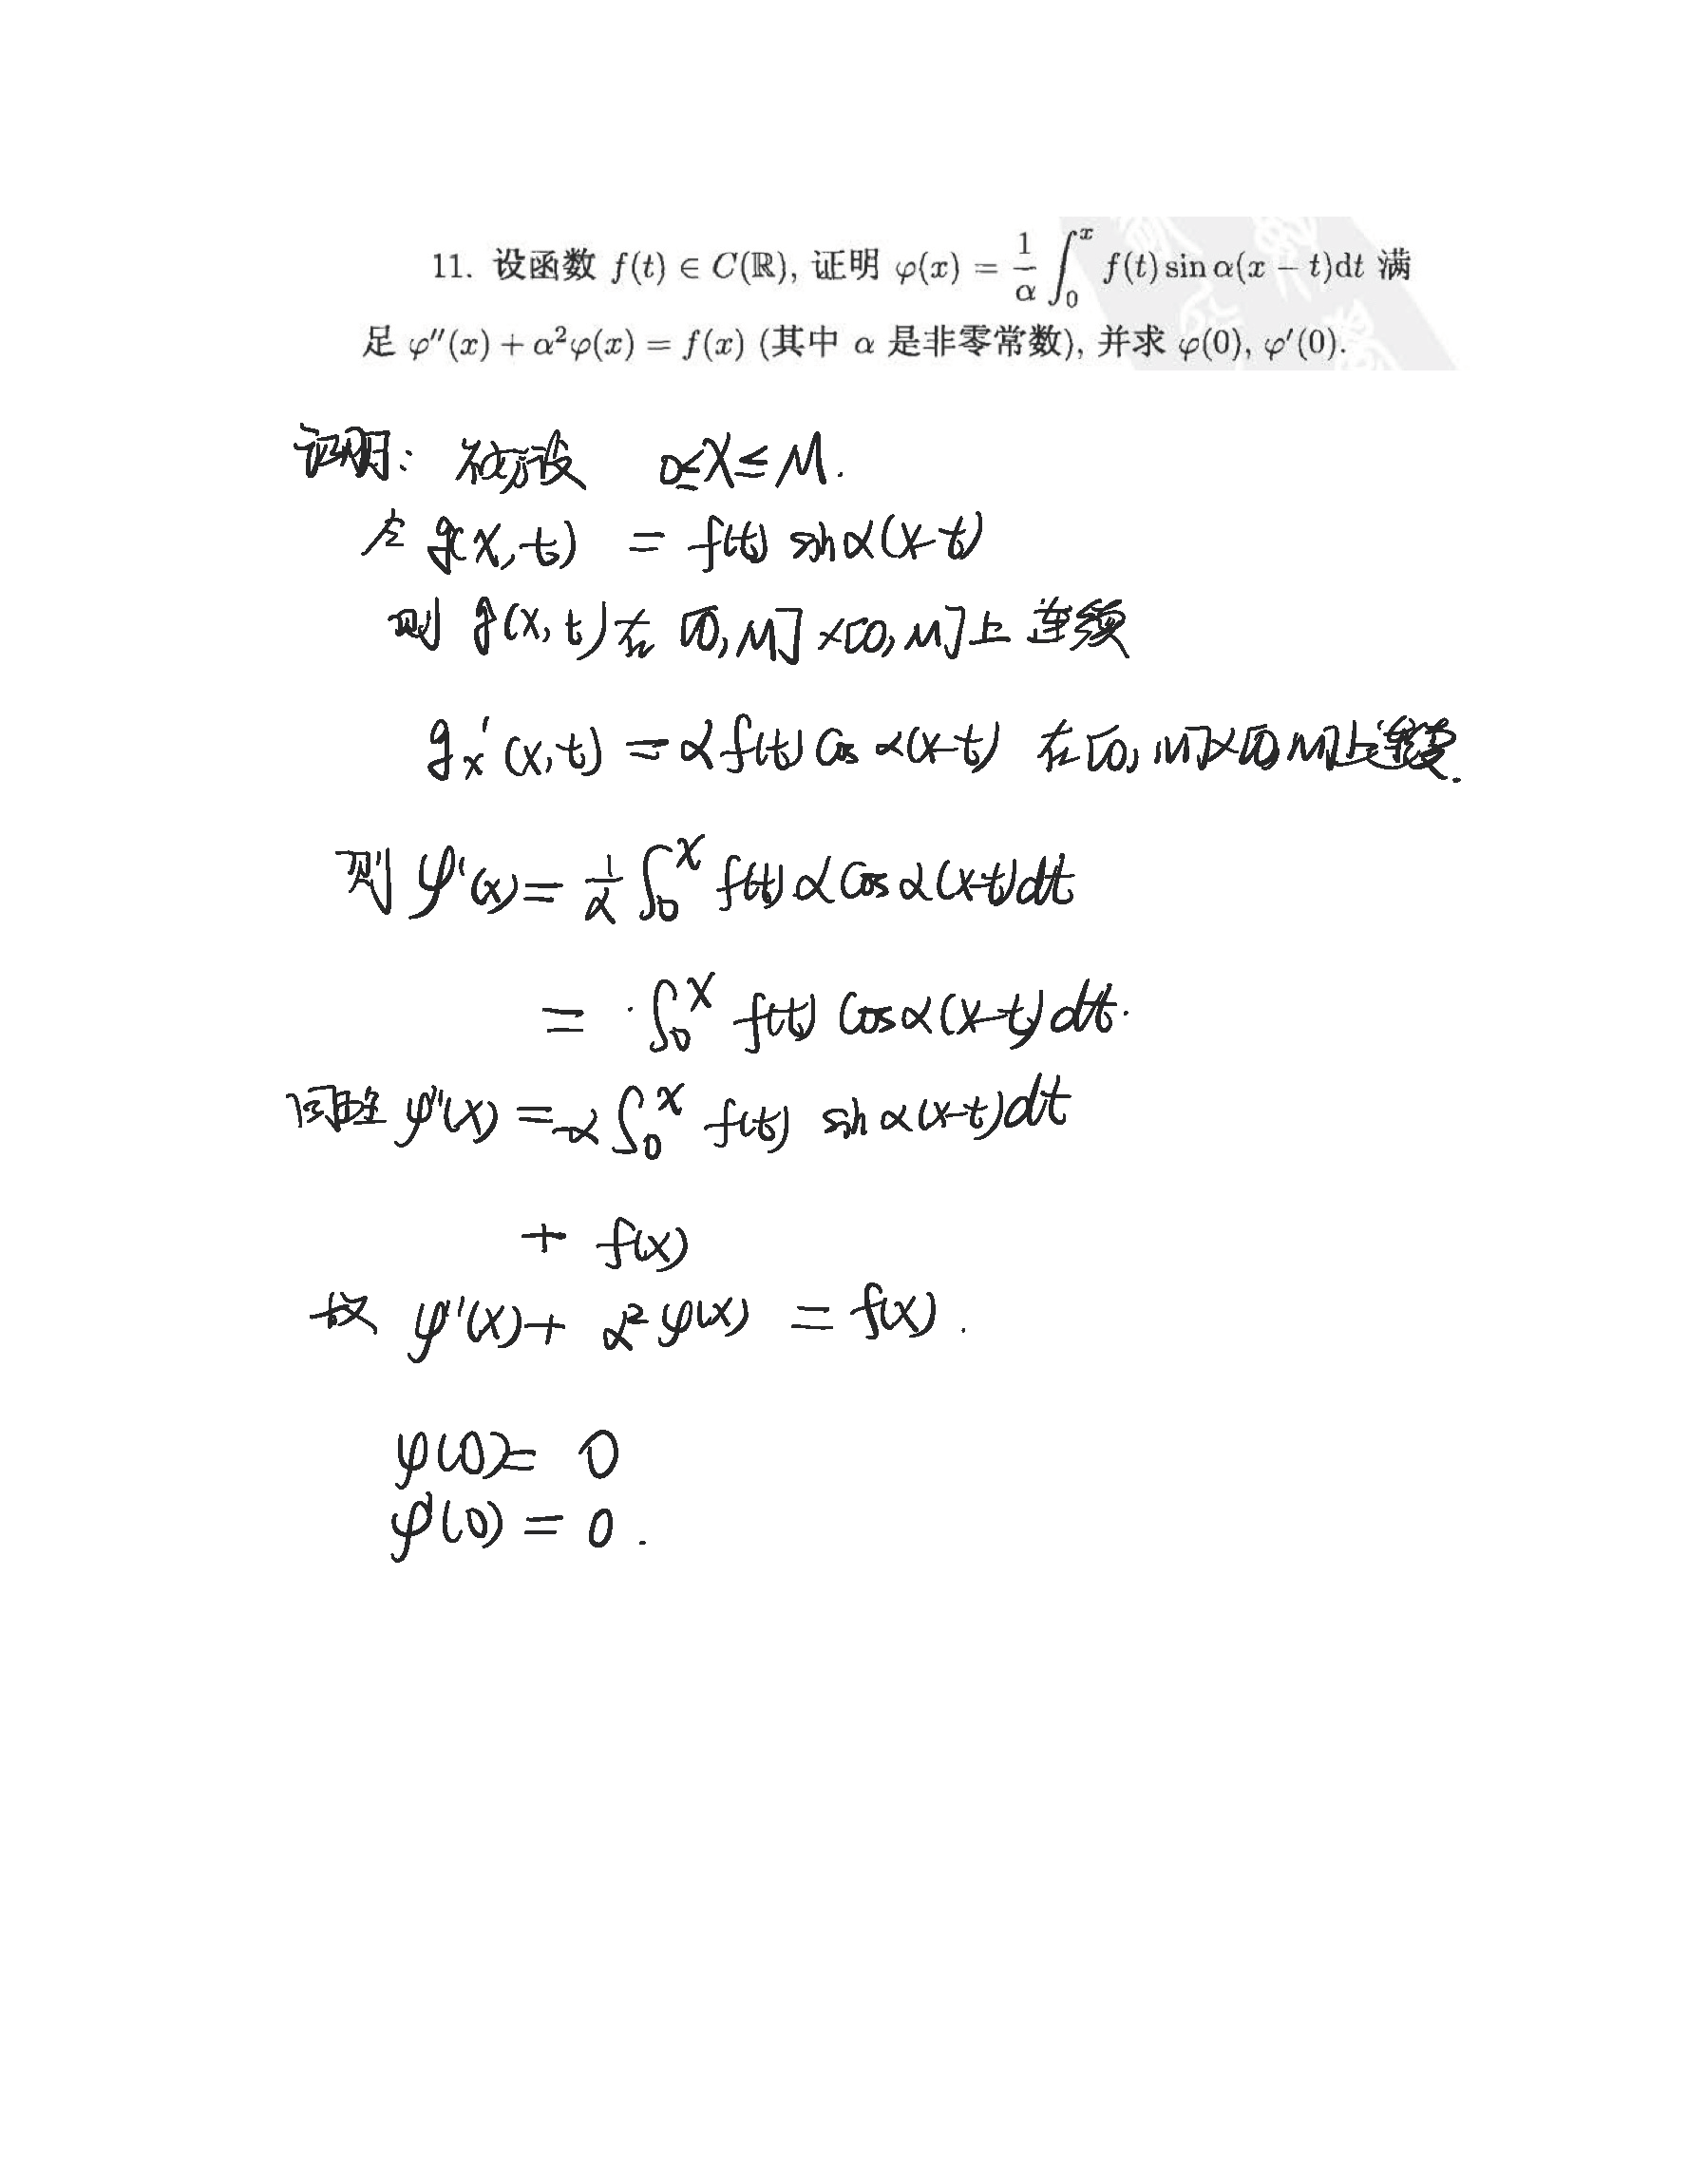 11. 设函数 f(t) ∈ C(ℝ), 证明 φ(x) = \frac{1}{α} ∫_0^x f(t) sin α(x − t)dt 满
足 φ″(x) + α²φ(x) = f(x) (其中 α 是非零常数), 并求 φ(0), φ′(0).
证明: 不妨设 0≤x≤M.
令 g(x,t) = f(t) sin α(x-t)
则 g(x,t) 在 [0,M]×[0,M]上连续
g_x′(x,t) = αf(t) cos α(x-t) 在[0,M]×[0,M]上连续.
则 φ′(x) = \frac{1}{α} ∫_0^x f(t) α cos α(x-t)dt
= ∫_0^x f(t) cos α(x-t)dt.
同理 φ″(x) = -α ∫_0^x f(t) sin α(x-t)dt
+ f(x)
故 φ″(x) + α²φ(x) = f(x).
φ(0) = 0
φ′(0) = 0.